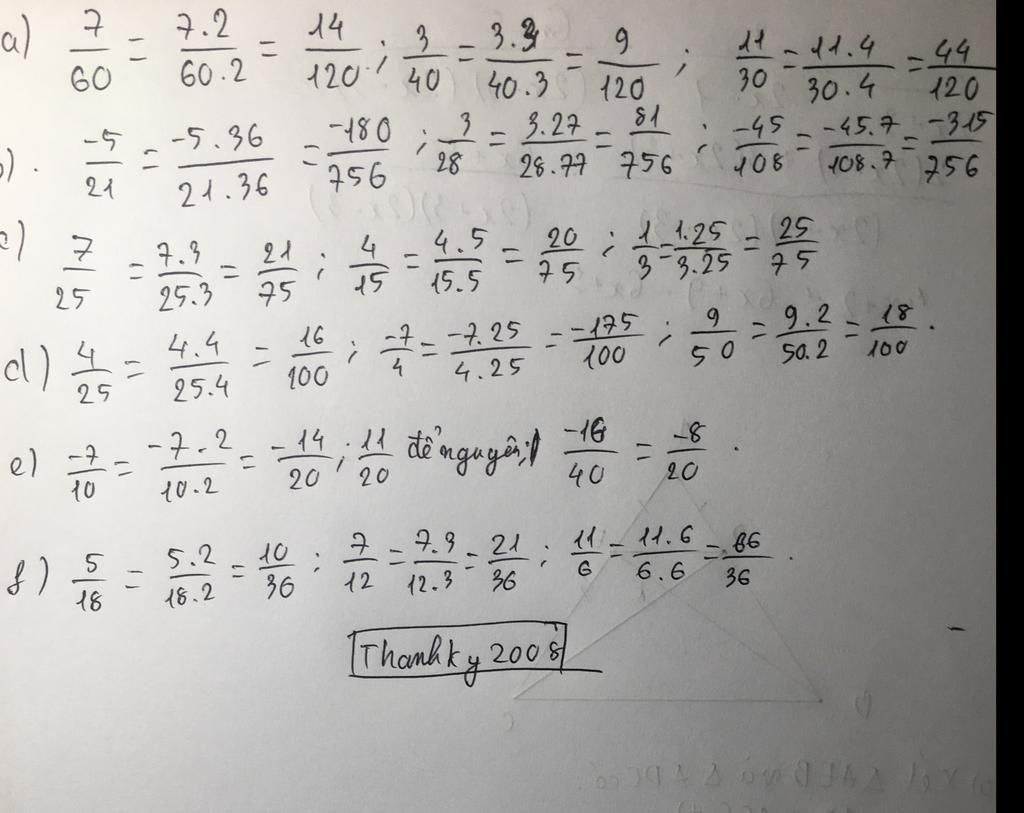 a) 7/60 = 7.2/60.2 = 14/120 ; 3/40 = 3.3/40.3 = 9/120 ; 11/30 = 11.4/30.4 = 44/120
b). -5/21 = -5.36/21.36 = -180/756 ; 3/28 = 3.27/28.77 = 81/756 ; -45/108 = -45.7/108.7 = -315/756
c) 7/25 = 7.3/25.3 = 21/75 ; 4/15 = 4.5/15.5 = 20/75 ; 1/3 = 1.25/3.25 = 25/75
d) 4/25 = 4.4/25.4 = 16/100 ; -7/4 = -7.25/4.25 = -175/100 ; 9/50 = 9.2/50.2 = 18/100 .
e) -7/10 = -7.2/10.2 = -14/20 ; 11/20 để nguyên; -16/40 = -8/20 .
f) 5/18 = 5.2/18.2 = 10/36 ; 7/12 = 7.3/12.3 = 21/36 ; 11/6 = 11.6/6.6 = 66/36 .
Thanhky2008